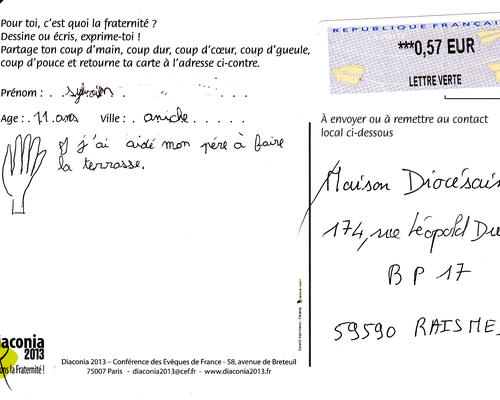 Pour toi, c'est quoi la fraternité ?
Dessine ou écris, exprime-toi !
Partage ton coup d'main, coup dur, coup d'cœur, coup d'gueule,
coup d'pouce et retourne ta carte à l'adresse ci-contre.
Prénom : . . sylvain
Age : . 11 ans Ville : . . aniche . . . . .
j'ai aidé mon père à faire
la terrasse.
REPUBLIQUE FRANÇAI
***0,57 EUR
LETTRE VERTE
À envoyer ou à remettre au contact
local ci-dessous
Maison Diocésain
174, rue Léopold Du
BP 17
59590 RAISME
iaconia
2013
ons la Fraternité !
Diaconia 2013 – Conférence des Evêques de France - 58, avenue de Breteuil
75007 Paris - diaconia2013@cef.fr - www.diaconia2013.fr